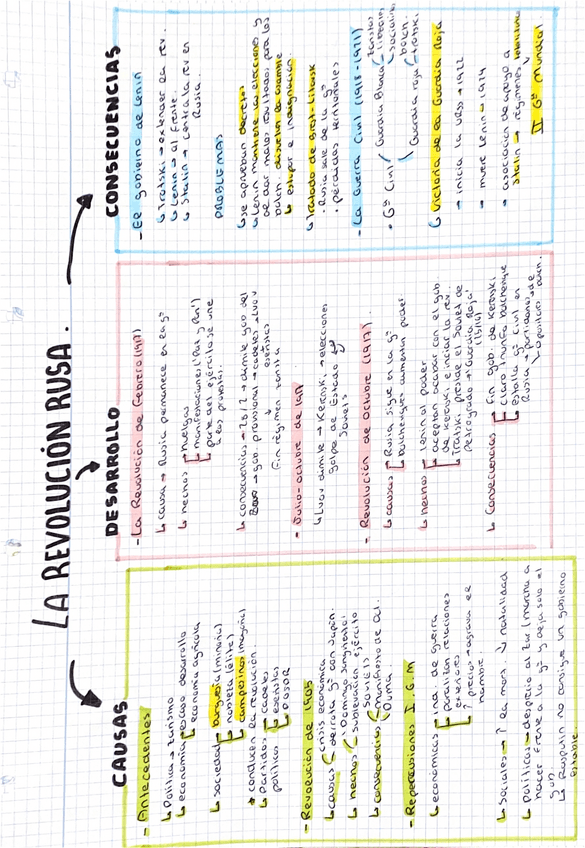 LA REVOLUCIÓN RUSA.
CAUSAS
- Antecedentes
↳ Política → zarismo
↳ economía escaso desarrollo
economía agrícola
↳ sociedad burguesía (minoría)
nobleza (élite)
campesinos (mayoría)
* conducen la revolución.
↳ Partidos cadetes
políticos eseristas
POSDR
- Revolución de 1905
↳ causas crisis económica
derrota gª con Japón.
↳ hechos 'Domingo Sangriento'
sublevación ejército
soviets
↳ consecuencias manifiesto de Oct.
Duma
- Repercusiones I G.M
↳ económicas eca. de guerra
paralizan relaciones
exteriores
↑ precios → agrava el
hambre.
↳ sociales → ↑ la mort. ↓ natalidad.
↳ políticas → desprecio al zar (marcha a
hacer frente a la gª y deja solo el
gob.
↳ Rasputín no consigue un gobierno
estable.
DESARROLLO
- La Revolución de Febrero (1917)
↳ causa → Rusia permanece en la gª
↳ hechos → huelgas
manifestaciones
parte del ejército se une
a las protestas.
↳ consecuencias → 28/2 → dimite gob. del
→ gob. provisional → cadetes → Lvov
eseristas
Fin régimen zarista
- Julio-octubre de 1917
↳ Lvov dimite → Kerenski → elecciones
golpe de Estado
soviets
- Revolución de octubre (1917)
↳ causas Rusia sigue en la gª
bolcheviques aumentan poder.
↳ hechos Lenin al poder
aceptaron acabar con el gob.
de Kerenski e iniciar la rev.
Trotski preside el Soviet de
Petrogrado → 'Guardia Roja'
↳ Consecuencias Fin gob. de Kerenski
claro triunfo bolchevique
estalla gª civil en
Rusia → partidarios de
opositores bolch.
CONSECUENCIAS
- El gobierno de Lenin
↳ Trotski → extender la rev.
↳ Lenin → al frente.
↳ Stalin → centra la rev en
Rusia.
PROBLEMAS
↳ se aprueban decretos
↳ Lenin mantiene las elecciones y
al dar malos resultados para los
bolch. disuelven la asamblea
↳ estupor e indignación.
↳ Tratado de Brest-Litovsk
· Rusia sale de la gª
· pérdidas territoriales
- La Guerra Civil (1918-1921)
· Gª Civil Guardia Blanca zaristas
liberales
socialistas
Guardia roja bolch.
trotski.
↳ Victoria de la Guardia Roja
→ inicia la URSS → 1922
→ muere Lenin → 1924
→ asociación de apoyo a
Stalin → régimen
II Gª Mundial